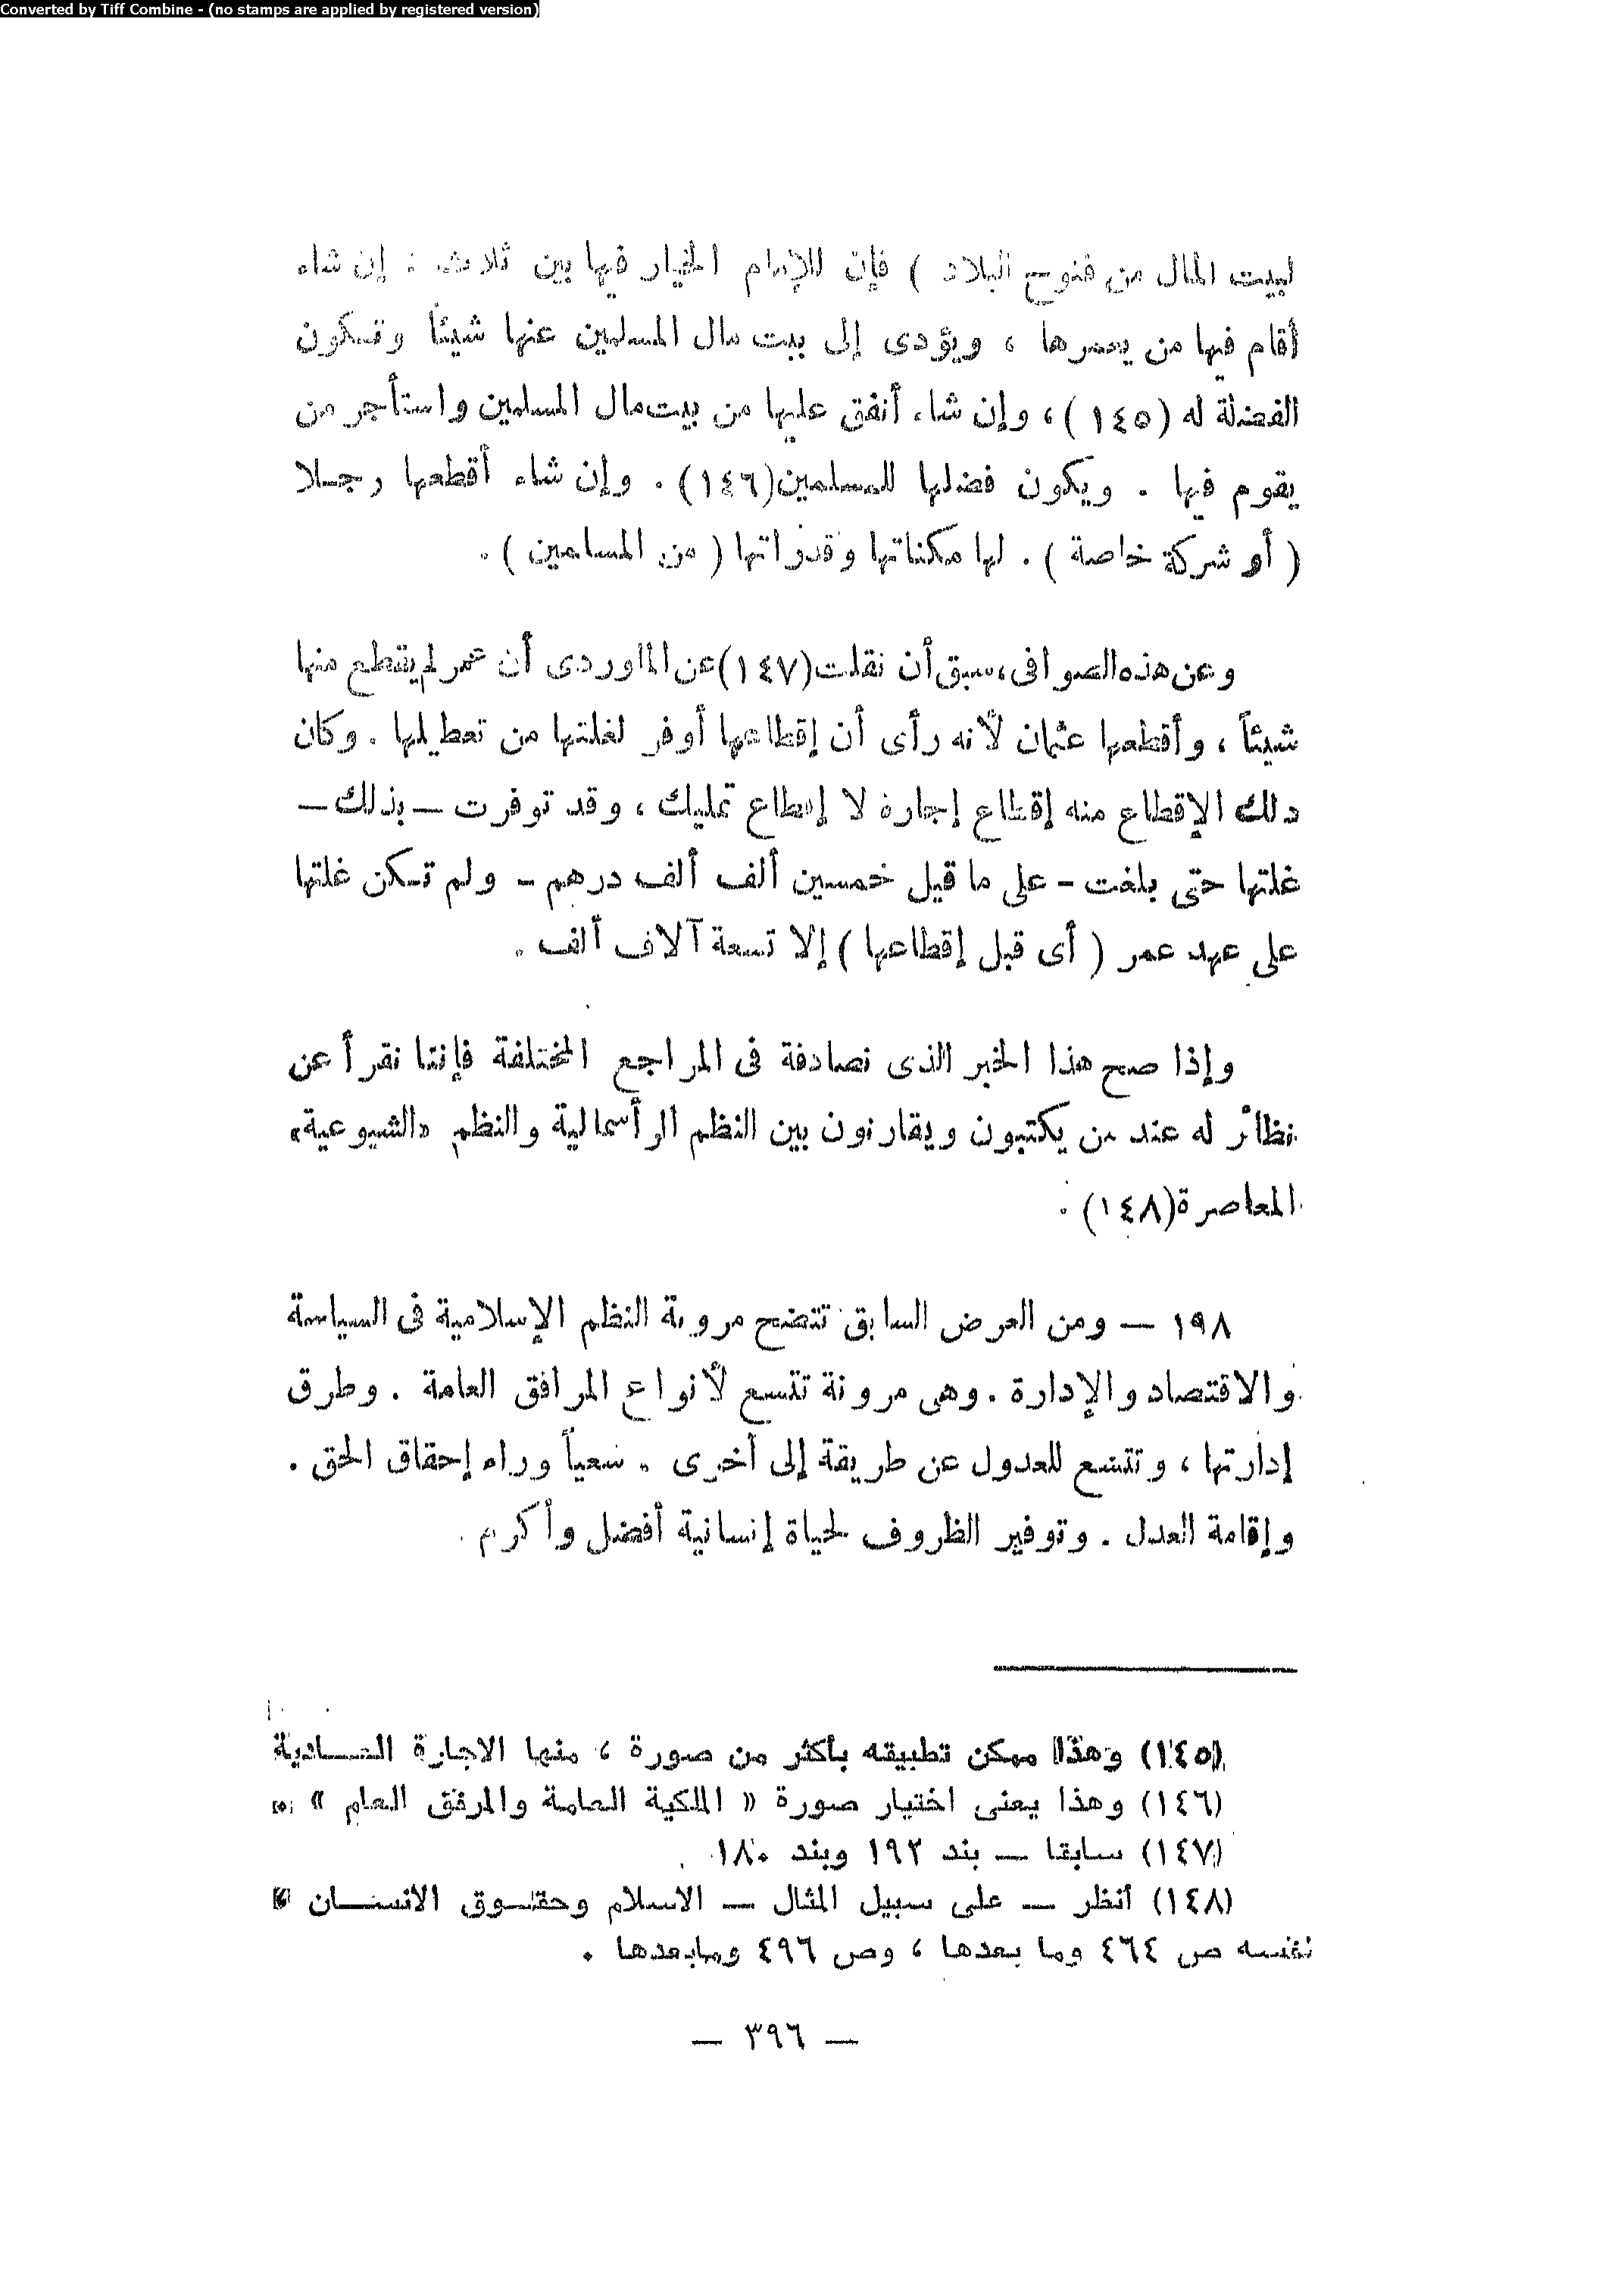 Converted by Tiff Combine - (no stamps are applied by registered version)
لبيت المال من فتوح البلاد ) فإن للإمام الخيار فيها بين ثلاث : إن شاء
أقام فيها من يعمرها ، ويؤدى إلى بيت مال المسلمين عنها شيئاً وتكون
الفضلة له (١٤٥) ، وإن شاء أنفق عليها من بيت مال المسلمين واستأجر من
يقوم فيها . ويكون فضلها للمسلمين(١٤٦) . وإن شاء أقطعها رجلا
( أو شركة خاصة ) . لها مكناتها وقدراتها ( من المسلمين ) .
وعن هذه الصوافى ، سبق أن نقلت(١٤٧) عن الماوردى أن عمر لم يقتطع منها
شيئاً ، وأقطعها عثمان لأنه رأى أن إقطاعها أوفر لغلتها من تعطيلها . وكان
ذلك الإقطاع منه إقطاع إجارة لا إقطاع تمليك ، وقد توفرت — بذلك —
غلتها حتى بلغت - على ما قيل خمسين ألف ألف درهم - ولم تكن غلتها
على عهد عمر ( أى قبل إقطاعها ) إلا تسعة آلاف ألف .
وإذا صح هذا الخبر الذى نصادفة فى المراجع المختلفة فإننا نقرأ عن
نظائر له عند من يكتبون ويقارنون بين النظم الرأسمالية والنظم «الشيوعية»
المعاصرة(١٤٨) .
١٩٨ — ومن العرض السابق تتضح مرونة النظم الإسلامية فى السياسة
والاقتصاد والإدارة . وهى مرونة تتسع لأنواع المرافق العامة . وطرق
إدارتها ، وتتسع للعدول عن طريقة إلى أخرى . سعياً وراء إحقاق الحق .
وإقامة العدل . وتوفير الظروف لحياة إنسانية أفضل وأكرم .
(١٤٥) وهذا ممكن تطبيقه بأكثر من صورة ، منها الاجارة العادية
(١٤٦) وهذا يعنى اختيار صورة « الملكية العامة والمرفق العام »
(١٤٧) سابقا — بند ١٩٢ وبند ١٨٠ .
(١٤٨) أنظر — على سبيل المثال — الاسلام وحقوق الانسان ،
نفسه ص ٤٦٤ وما بعدها ، وص ٤٩٦ ومابعدها .
— ٣٩٦ —